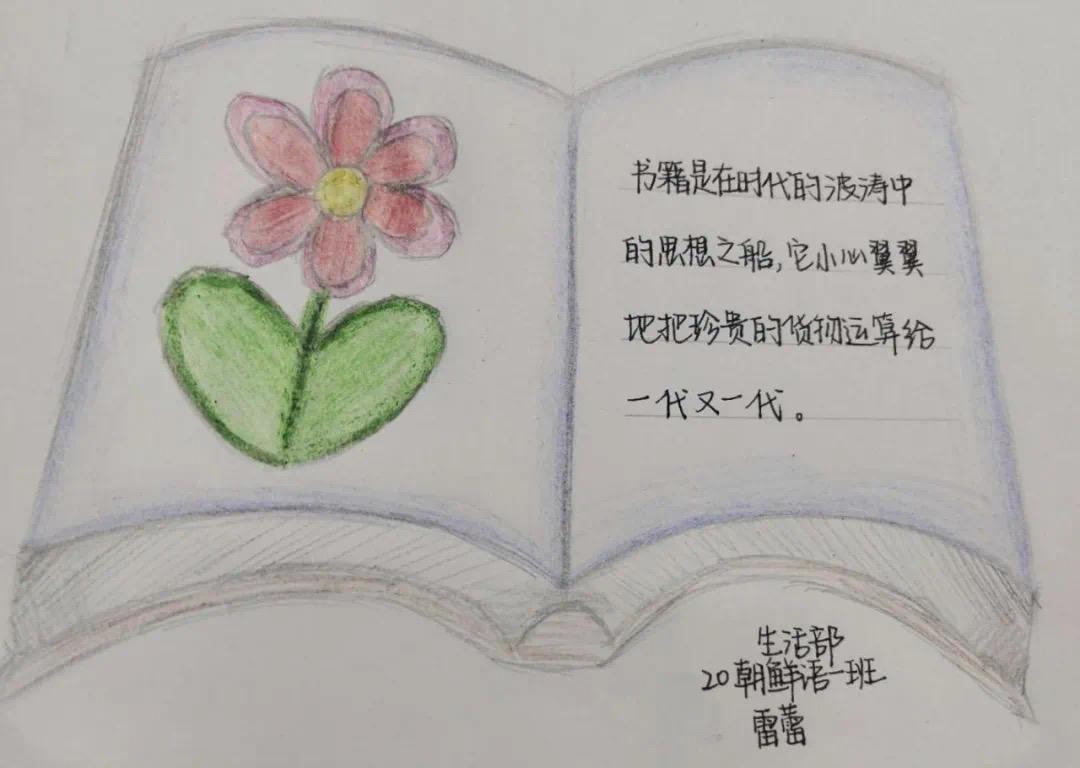 书籍是在时代的波涛中
的思想之船,它小心翼翼
地把珍贵的货物运算给
一代又一代。
生活部
20朝鲜语一班
雷蕾